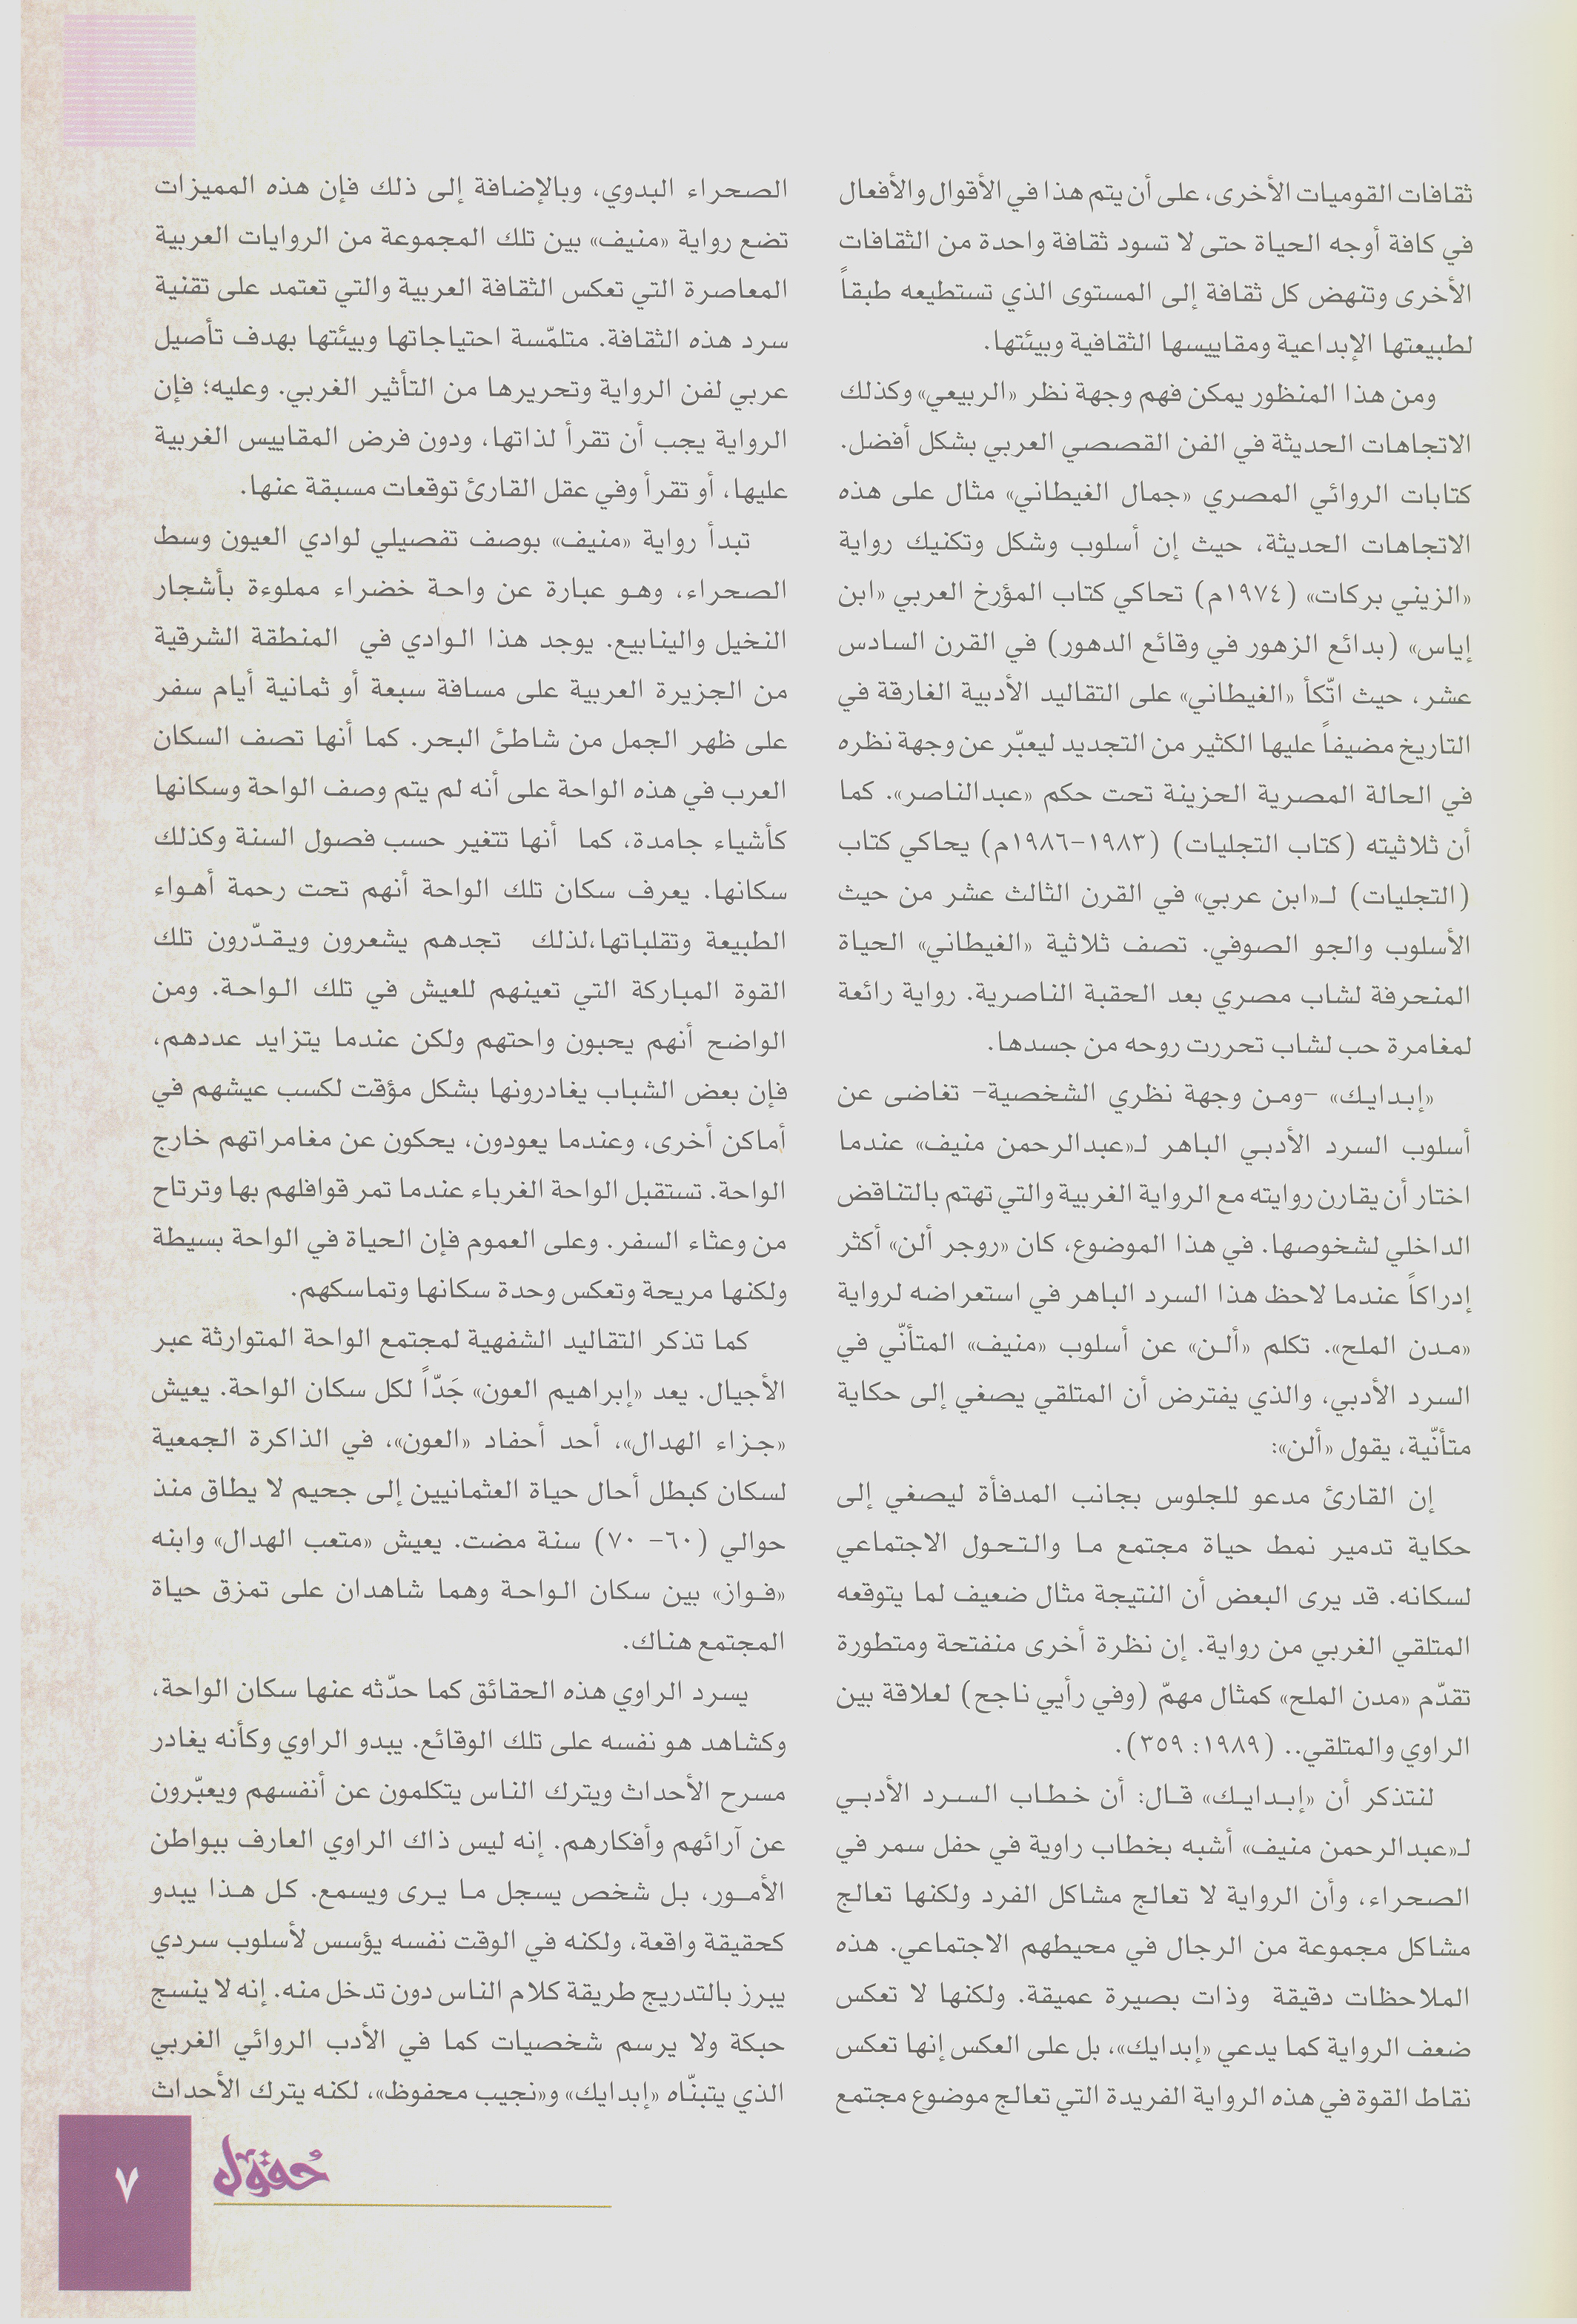 ثقافات القوميات الأخرى، على أن يتم هذا في الأقوال والأفعال
في كافة أوجه الحياة حتى لا تسود ثقافة واحدة من الثقافات
الأخرى وتنهض كل ثقافة إلى المستوى الذي تستطيعه طبقاً
لطبيعتها الإبداعية ومقاييسها الثقافية وبيئتها.
ومن هذا المنظور يمكن فهم وجهة نظر «الربيعي» وكذلك
الاتجاهات الحديثة في الفن القصصي العربي بشكل أفضل.
كتابات الروائي المصري «جمال الغيطاني» مثال على هذه
الاتجاهات الحديثة، حيث إن أسلوب وشكل وتكنيك رواية
«الزيني بركات» (١٩٧٤م) تحاكي كتاب المؤرخ العربي «ابن
إياس» (بدائع الزهور في وقائع الدهور) في القرن السادس
عشر، حيث اتّكأ «الغيطاني» على التقاليد الأدبية الغارقة في
التاريخ مضيفاً عليها الكثير من التجديد ليعبّر عن وجهة نظره
في الحالة المصرية الحزينة تحت حكم «عبدالناصر». كما
أن ثلاثيته (كتاب التجليات) (١٩٨٣-١٩٨٦م) يحاكي كتاب
(التجليات) لـ«ابن عربي» في القرن الثالث عشر من حيث
الأسلوب والجو الصوفي. تصف ثلاثية «الغيطاني» الحياة
المنحرفة لشاب مصري بعد الحقبة الناصرية. رواية رائعة
لمغامرة حب لشاب تحررت روحه من جسدها.
«إبدايك» -ومن وجهة نظري الشخصية- تغاضى عن
أسلوب السرد الأدبي الباهر لـ«عبدالرحمن منيف» عندما
اختار أن يقارن روايته مع الرواية الغربية والتي تهتم بالتناقض
الداخلي لشخوصها. في هذا الموضوع، كان «روجر ألن» أكثر
إدراكاً عندما لاحظ هذا السرد الباهر في استعراضه لرواية
«مدن الملح». تكلم «ألن» عن أسلوب «منيف» المتأنّي في
السرد الأدبي، والذي يفترض أن المتلقي يصغي إلى حكاية
متأنّية، يقول «ألن»:
إن القارئ مدعو للجلوس بجانب المدفأة ليصغي إلى
حكاية تدمير نمط حياة مجتمع ما والتحول الاجتماعي
لسكانه. قد يرى البعض أن النتيجة مثال ضعيف لما يتوقعه
المتلقي الغربي من رواية. إن نظرة أخرى منفتحة ومتطورة
تقدّم «مدن الملح» كمثال مهمّ (وفي رأيي ناجح) لعلاقة بين
الراوي والمتلقي.. (١٩٨٩: ٣٥٩).
لنتذكر أن «إبدايك» قال: أن خطاب السرد الأدبي
لـ«عبدالرحمن منيف» أشبه بخطاب راوية في حفل سمر في
الصحراء، وأن الرواية لا تعالج مشاكل الفرد ولكنها تعالج
مشاكل مجموعة من الرجال في محيطهم الاجتماعي. هذه
الملاحظات دقيقة وذات بصيرة عميقة. ولكنها لا تعكس
ضعف الرواية كما يدعي «إبدايك»، بل على العكس إنها تعكس
نقاط القوة في هذه الرواية الفريدة التي تعالج موضوع مجتمع
الصحراء البدوي، وبالإضافة إلى ذلك فإن هذه المميزات
تضع رواية «منيف» بين تلك المجموعة من الروايات العربية
المعاصرة التي تعكس الثقافة العربية والتي تعتمد على تقنية
سرد هذه الثقافة. متلمّسة احتياجاتها وبيئتها بهدف تأصيل
عربي لفن الرواية وتحريرها من التأثير الغربي. وعليه؛ فإن
الرواية يجب أن تقرأ لذاتها، ودون فرض المقاييس الغربية
عليها، أو تقرأ وفي عقل القارئ توقعات مسبقة عنها.
تبدأ رواية «منيف» بوصف تفصيلي لوادي العيون وسط
الصحراء، وهو عبارة عن واحة خضراء مملوءة بأشجار
النخيل والينابيع. يوجد هذا الوادي في المنطقة الشرقية
من الجزيرة العربية على مسافة سبعة أو ثمانية أيام سفر
على ظهر الجمل من شاطئ البحر. كما أنها تصف السكان
العرب في هذه الواحة على أنه لم يتم وصف الواحة وسكانها
كأشياء جامدة، كما أنها تتغير حسب فصول السنة وكذلك
سكانها. يعرف سكان تلك الواحة أنهم تحت رحمة أهواء
الطبيعة وتقلباتها،لذلك تجدهم يشعرون ويقدّرون تلك
القوة المباركة التي تعينهم للعيش في تلك الواحة. ومن
الواضح أنهم يحبون واحتهم ولكن عندما يتزايد عددهم،
فإن بعض الشباب يغادرونها بشكل مؤقت لكسب عيشهم في
أماكن أخرى، وعندما يعودون، يحكون عن مغامراتهم خارج
الواحة. تستقبل الواحة الغرباء عندما تمر قوافلهم بها وترتاح
من وعثاء السفر. وعلى العموم فإن الحياة في الواحة بسيطة
ولكنها مريحة وتعكس وحدة سكانها وتماسكهم.
كما تذكر التقاليد الشفهية لمجتمع الواحة المتوارثة عبر
الأجيال. يعد «إبراهيم العون» جَدّاً لكل سكان الواحة. يعيش
«جزاء الهدال»، أحد أحفاد «العون»، في الذاكرة الجمعية
لسكان كبطل أحال حياة العثمانيين إلى جحيم لا يطاق منذ
حوالي (٦٠- ٧٠) سنة مضت. يعيش «متعب الهدال» وابنه
«فواز» بين سكان الواحة وهما شاهدان على تمزق حياة
المجتمع هناك.
يسرد الراوي هذه الحقائق كما حدّثه عنها سكان الواحة،
وكشاهد هو نفسه على تلك الوقائع. يبدو الراوي وكأنه يغادر
مسرح الأحداث ويترك الناس يتكلمون عن أنفسهم ويعبّرون
عن آرائهم وأفكارهم. إنه ليس ذاك الراوي العارف ببواطن
الأمور، بل شخص يسجل ما يرى ويسمع. كل هذا يبدو
كحقيقة واقعة، ولكنه في الوقت نفسه يؤسس لأسلوب سردي
يبرز بالتدريج طريقة كلام الناس دون تدخل منه. إنه لا ينسج
حبكة ولا يرسم شخصيات كما في الأدب الروائي الغربي
الذي يتبنّاه «إبدايك» و«نجيب محفوظ»، لكنه يترك الأحداث
حُقول
٧